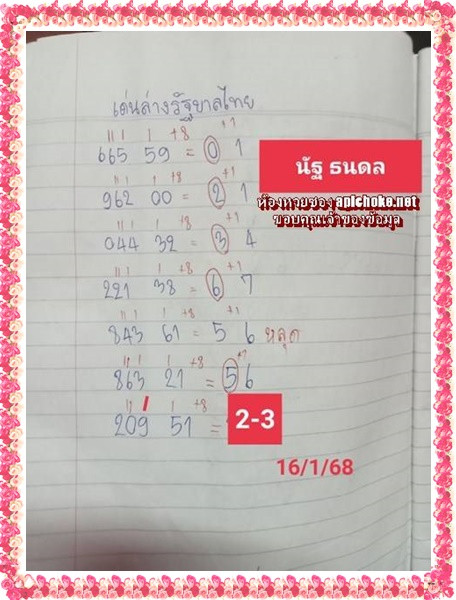 เด่นล่างรัฐบาลไทย
11 1 1 +8 +1
665 59 = 0 1
นัฐ ธนดล
1 1 1 +8 +1
962 00 = 2 1
ห้องหวยซอง apichoke.net
ขอบคุณเจ้าของข้อมูล
11 1 1 +8 +1
044 32 = 3 4
11 1 1 +8 +1
221 38 = 6 7
11 1 1 +8 +1
843 61 = 5 6 หลุด
11 1 1 +8 +1
863 21 = 5 6
11 1 1 +8
209 51 = 2-3
16/1/68